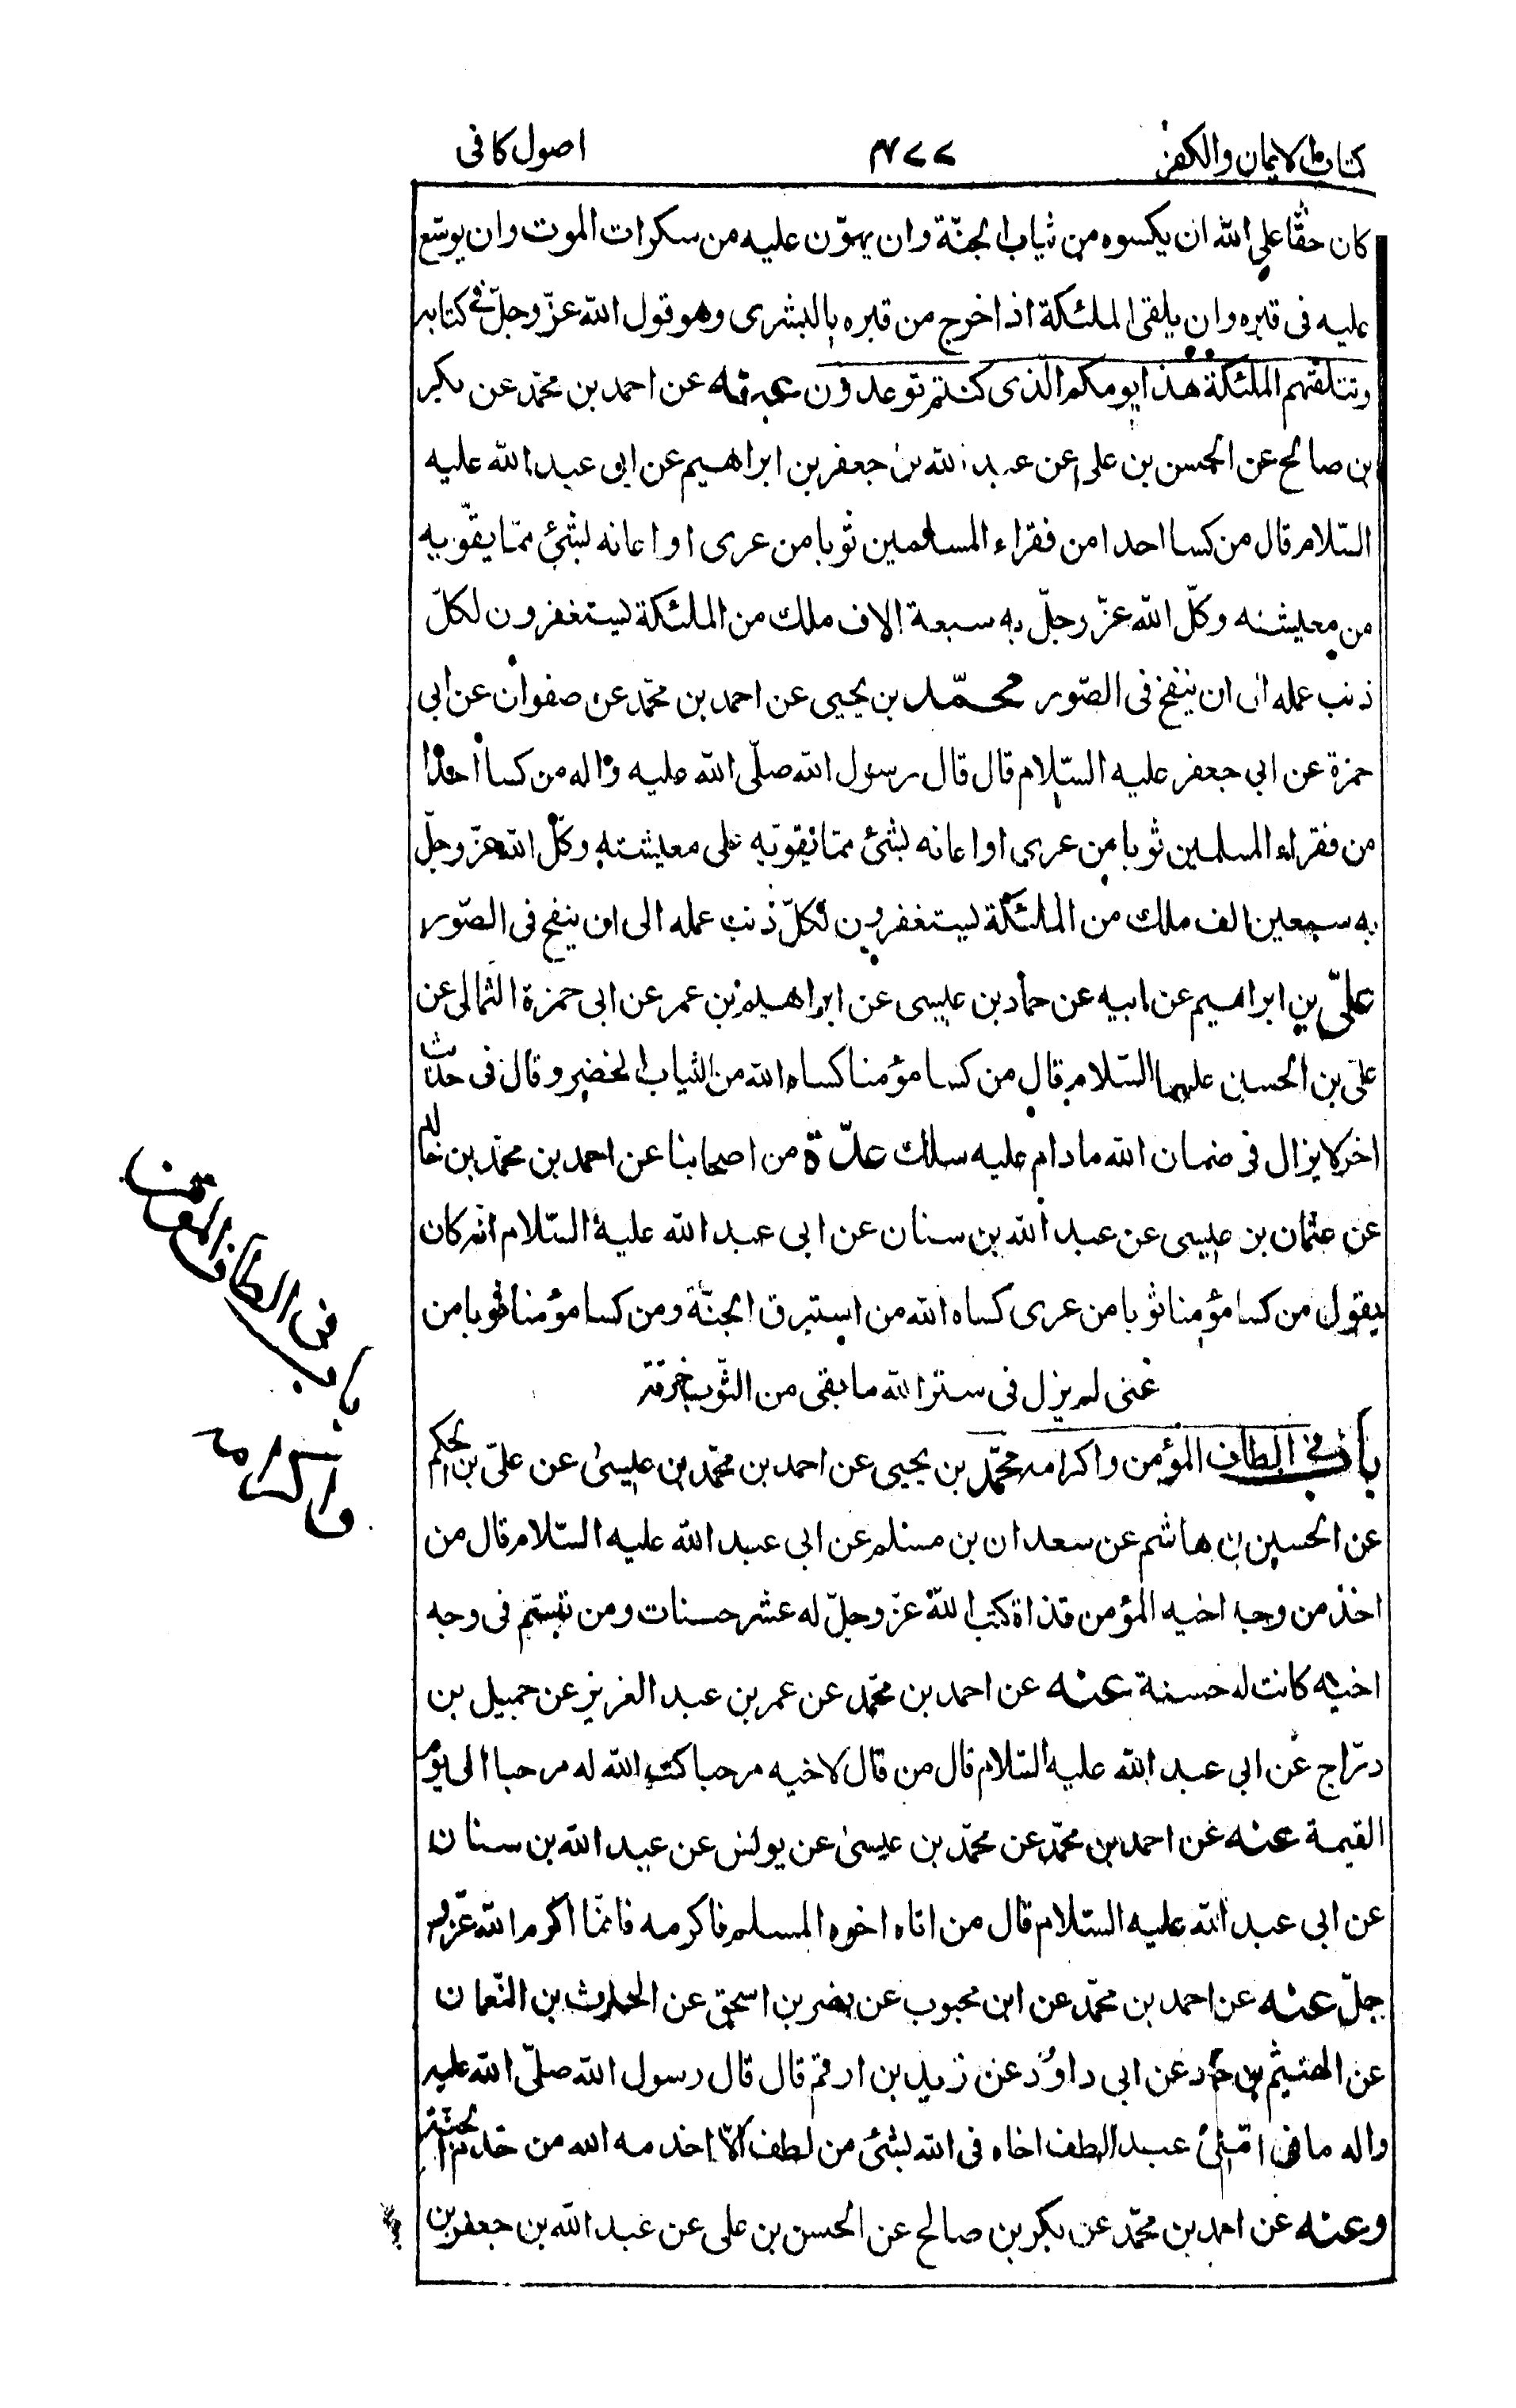 كتاب الايمان والكفر ٤٧٧ اصول كافى
كان حقّا على الله ان يكسوه من ثياب الجنّة وان يهوّن عليه من سكرات الموت وان يوسّع
عليه فى قبره وان يلقى الملئكة اذا خرج من قبره بالبشرى وهو قول الله عزّ وجلّ فى كتابه
وتتلقّيهم الملئكة هذا يومكم الّذى كنتم توعدون عنه عن احمد بن محمّد عن بكر
بن صالح عن الحسن بن على عن عبد الله بن جعفر بن ابراهيم عن ابى عبد الله عليه
السّلام قال من كسا احدا من فقراء المسلمين ثوبا من عرى او اعانه بشئ ممّا يقوّيه
من معيشته وكّل الله عزّ وجلّ به سبعة الاف ملك من الملئكة يستغفرون لكلّ
ذنب عمله الى ان ينفخ فى الصّور محمّد بن يحيى عن احمد بن محمّد عن صفوان عن ابى
حمزة عن ابى جعفر عليه السّلام قال قال رسول الله صلّى الله عليه واله من كسا احدا
من فقراء المسلمين ثوبا من عرى او اعانه بشئ ممّا يقوّيه على معيشته وكّل الله عزّ وجلّ
به سبعين الف ملك من الملئكة يستغفرون لكلّ ذنب عمله الى ان ينفخ فى الصّور
علىّ بن ابراهيم عن ابيه عن حماد بن عيسى عن ابراهيم بن عمر عن ابى حمزة الثّمالى عن
علىّ بن الحسين عليهما السّلام قال من كسا مؤمنا كساه الله من الثياب الخضر وقال فى حديث
اخر لا يزال فى ضمان الله ما دام عليه سلك عدّة من اصحابنا عن احمد بن محمّد بن خالد
عن عثمان بن عيسى عن عبد الله بن سنان عن ابى عبد الله عليه السّلام انّه كان
يقول من كسا مؤمنا ثوبا من عرى كساه الله من استبرق الجنّة ومن كسا مؤمنا ثوبا من
غنى لم يزل فى ستر الله ما بقى من الثّوب خرقة
باب فى الطاف المؤمن واكرامه محمّد بن يحيى عن احمد بن محمّد بن عيسىٰ عن علىّ بن الحكم
عن الحسين بن هاشم عن سعدان بن مسلم عن ابى عبد الله عليه السّلام قال من
اخذ من وجه اخيه المؤمن قذاة كتب الله عزّ وجلّ له عشر حسنات ومن تبسّم فى وجه
اخيه كانت له حسنة عنه عن احمد بن محمّد عن عمر بن عبد العزيز عن جميل بن
درّاج عن ابى عبد الله عليه السّلام قال من قال لاخيه مرحبا كتب الله له مرحبا الى يوم
القيمة عنه عن احمد بن محمّد عن محمّد بن عيسىٰ عن يونس عن عبد الله بن سنان
عن ابى عبد الله عليه السّلام قال من اتاه اخوه المسلم فاكرمه فانّما اكرم الله عزّ و
جلّ عنه عن احمد بن محمّد عن ابن محبوب عن نصر بن اسحق عن الحارث بن النّعمان
عن الهيثم بن حماد عن ابى داوُد عن زيد بن ارقم قال قال رسول الله صلّى الله عليه
واله ما فى امّتى عبد الطف اخاه فى الله بشئ من لطف الّا اخدمه الله من خدم الجنّة
وعنه عن احمد بن محمّد عن بكر بن صالح عن الحسن بن على عن عبد الله بن جعفر بن
باب فى الطاف المؤمن
واكرامه